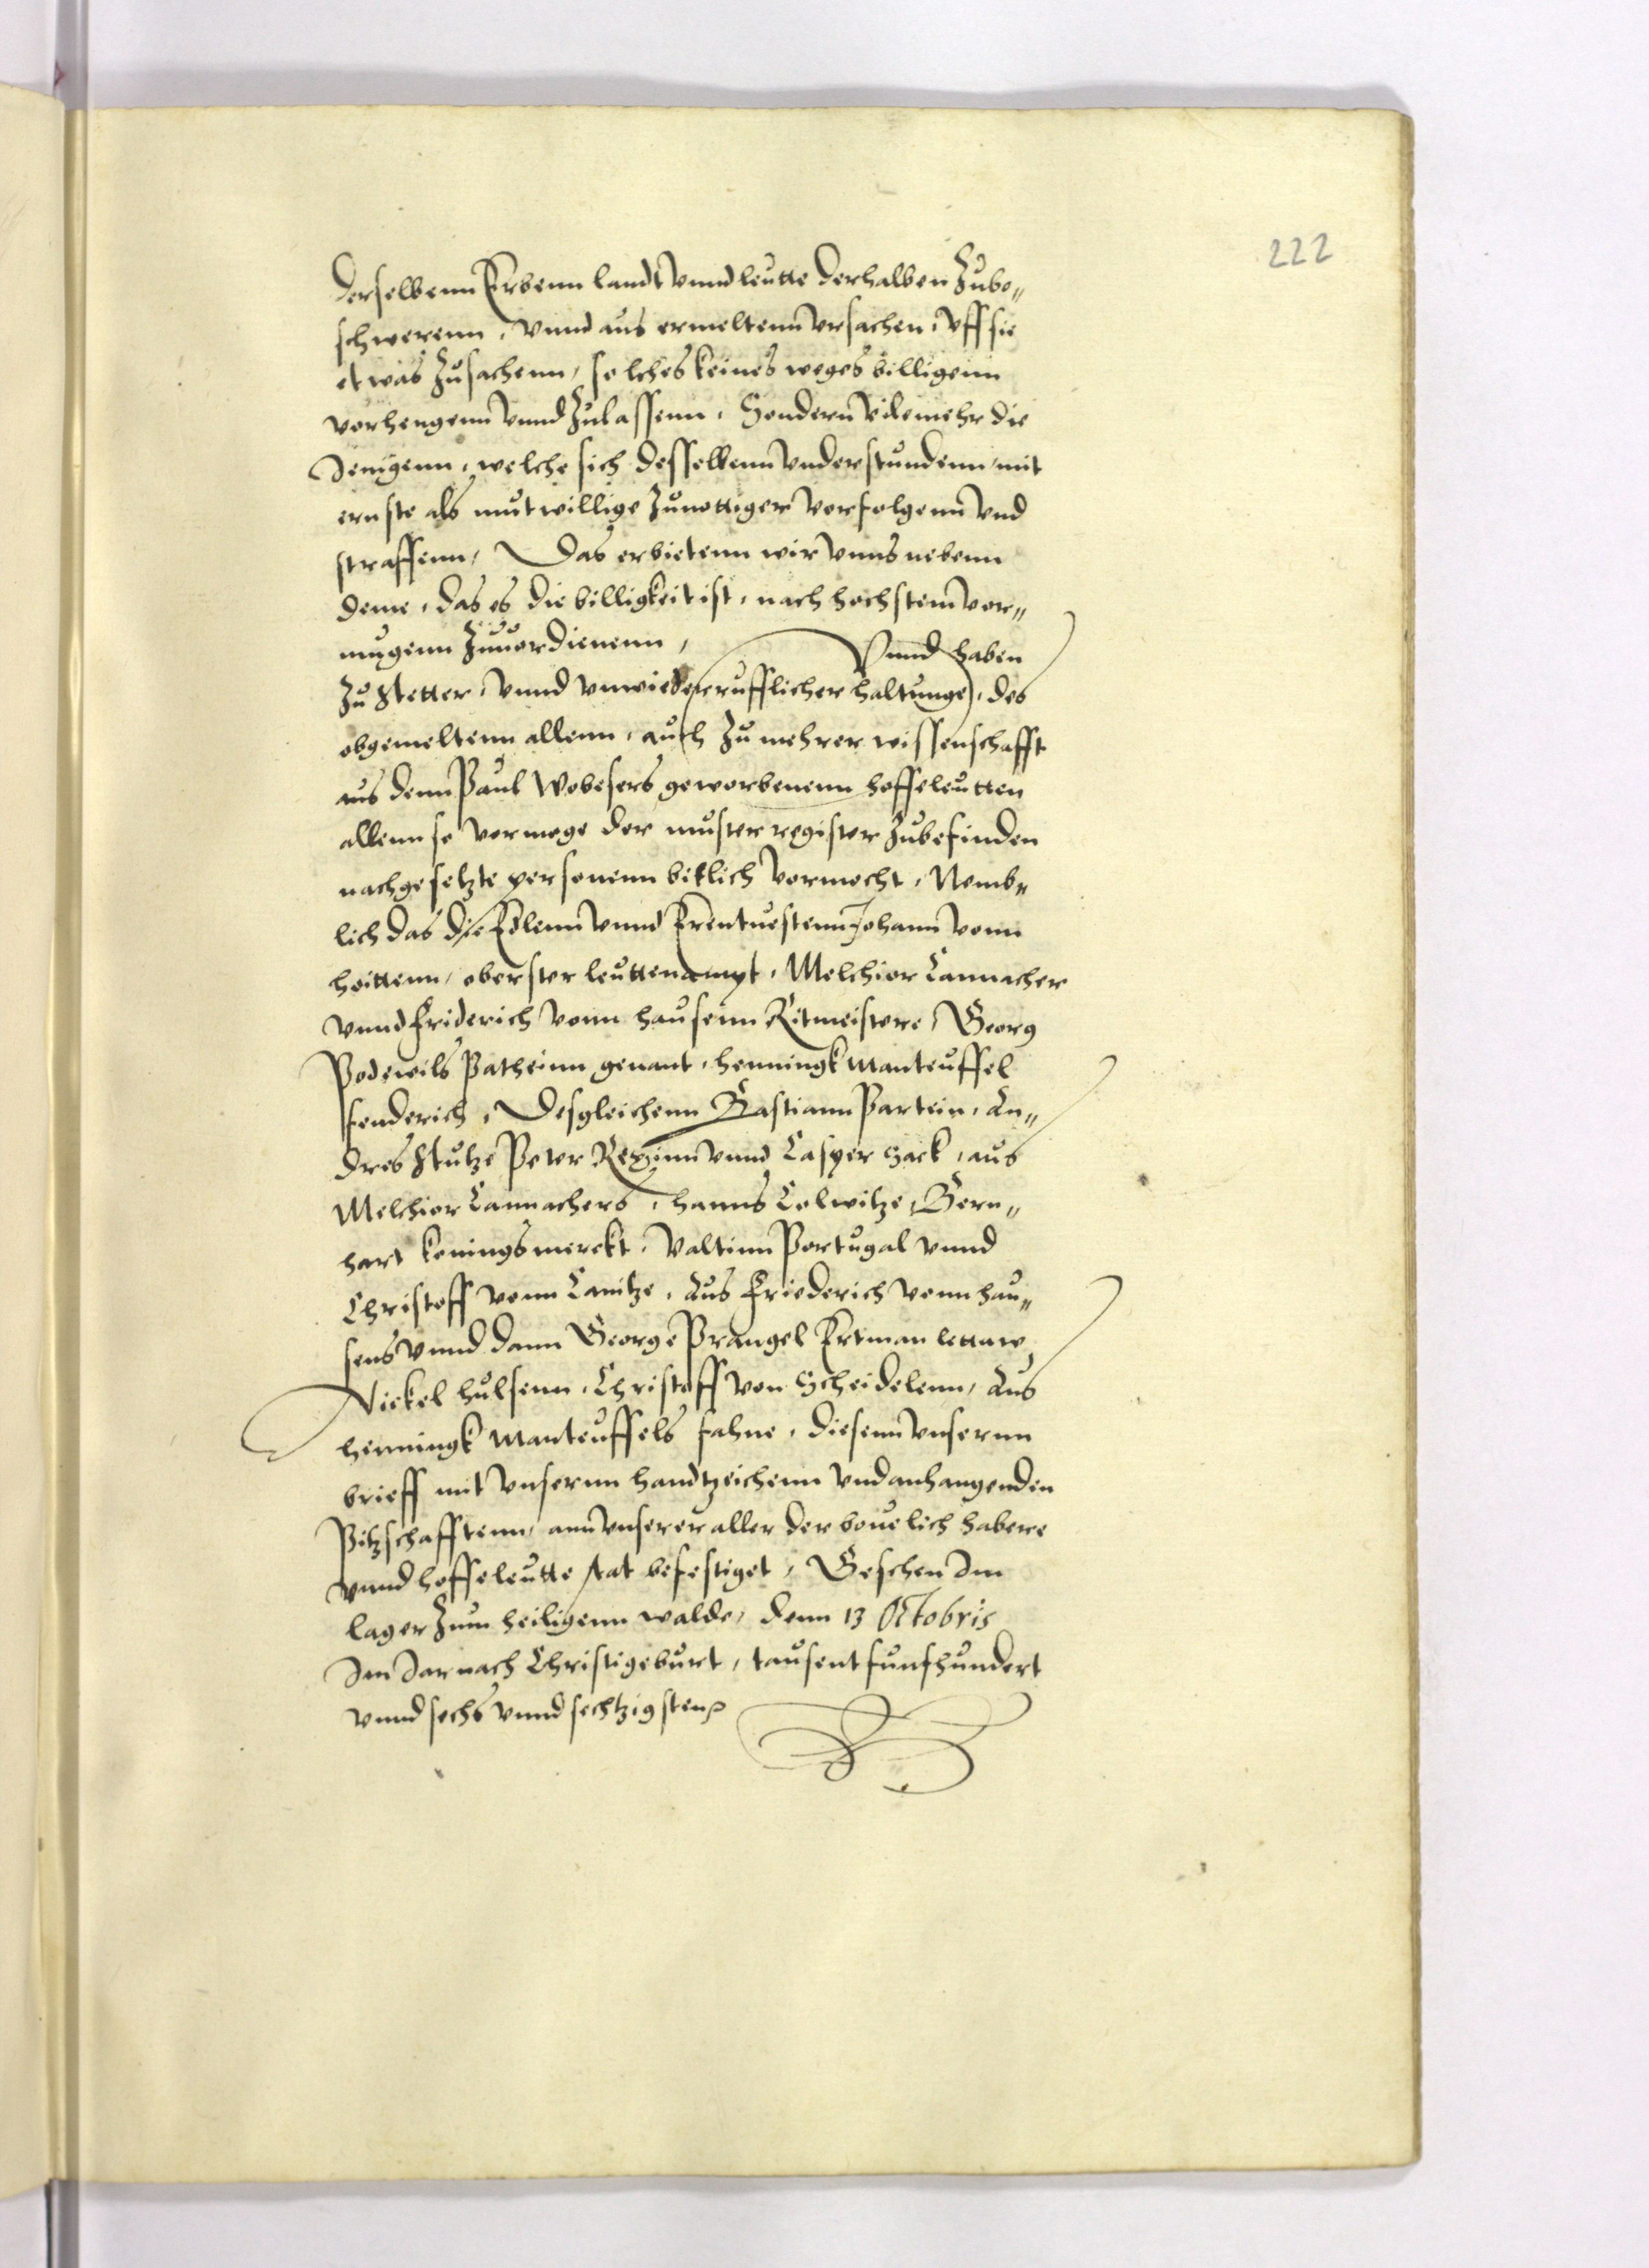 222
derselbenn Erbenn landt vnnd leutte derhalben Zube„
schwerenn, vnnd aus ermeltenn vrsachen, vff sie
etwas Zusachenn, solches keines weges billigenn
vorhengenn vnnd Zulassenn, Sondern vilemehr die
Jenigenn, welche sich desselbenn vnderstundenn, mit
ernste als mutwillige Zunottiger vorfolgenn vnd
straffenn, Das erbietenn wir vnns nebenn
deme, das es die billigkeit ist, nach hochstem vor„
mugenn Zuuordienenn, Vnnd haben
Zu stetter, vnnd vnwiederrufflicher haltunge, des
obgemeltenn allenn, auch Zu mehrer wissenschafft
aus denn Paul Wobesers geworbenenn hoffeleutten
allenn so vormoge der muster register Zubefinden
nachgesetzte personenn bitlich vormocht, Nemb„
lich das die Edlenn vnnd Erentuestenn Johann vonn
heittenn, oberster leuttenampt, Melchior Cannacher
vnnd Friderich vonn hausenn Ritmeistere, Georg
Podewils Patheinn genant, henningk Manteuffel
fenderich, Desgleichenn Bastiann Partein, An„
dres Stutze Peter Rezinn vnnd Casper Sack, aus
Melchior Cannachers, hanns Colwitze, Bern„
hart Koningsmerckt, Valtinn Portugal vnnd
Christoff vonn Canitze, Aus Friederich vonn hau„
sens vnnd dann George Prangel Ertman lettaw
Nickel hulsenn, Christoff von Scheidelenn, Aus
henningk Manteuffels fahne, diesenn vnsernn
brieff mit vnsernn handtzeichenn vnd anhangenden
Pitzschafftenn, ann vnserer aller der bouelich habere
vnnd hoffeleutte stat befestiget, Geschen Im
lager Zum heiligenn walde, denn 13 Octobris
Im Jar nach Christi geburt, tausent funfhundert
vnnd sechs vnnd sechtzigsten